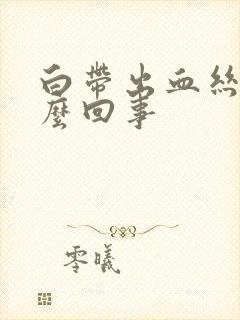 白帶出血絲
麼回事
零曦